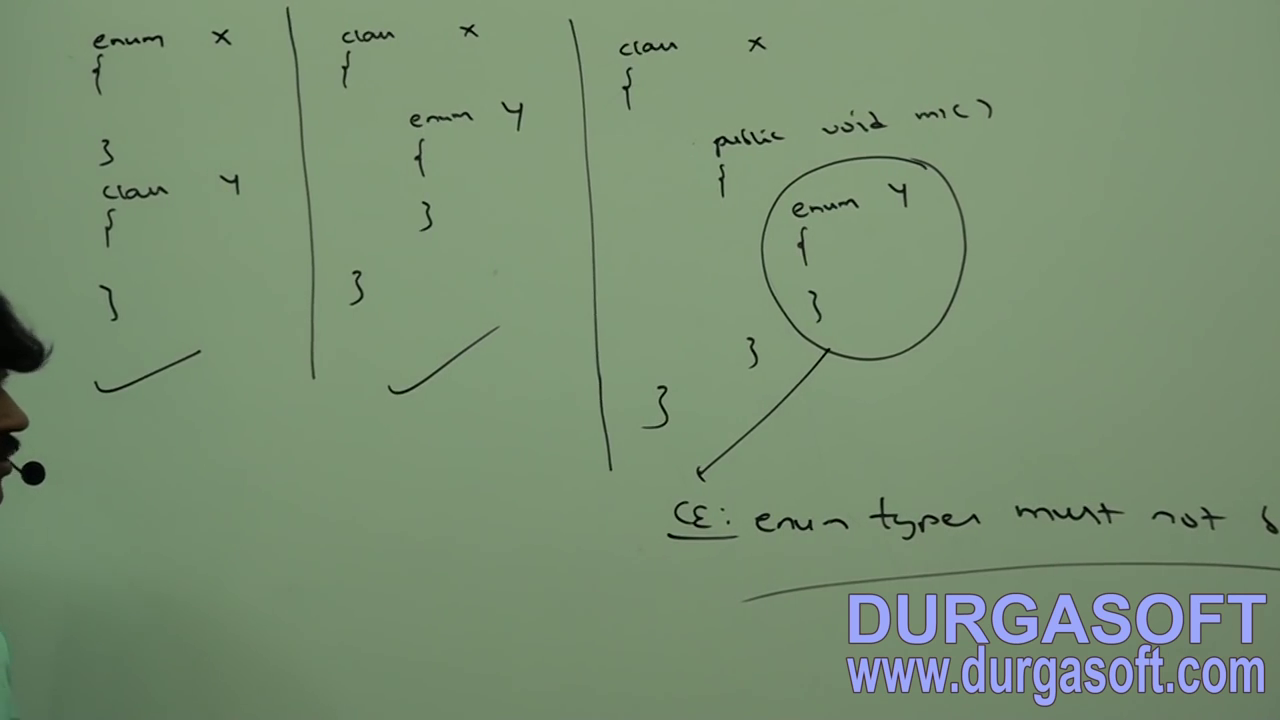 enum X
{
}
class Y
{
}
class X
{
enum Y
{
}
}
class X
{
public void m1()
{
enum Y
{
}
}
}
CE: enum types must not
DURGASOFT
www.durgasoft.com